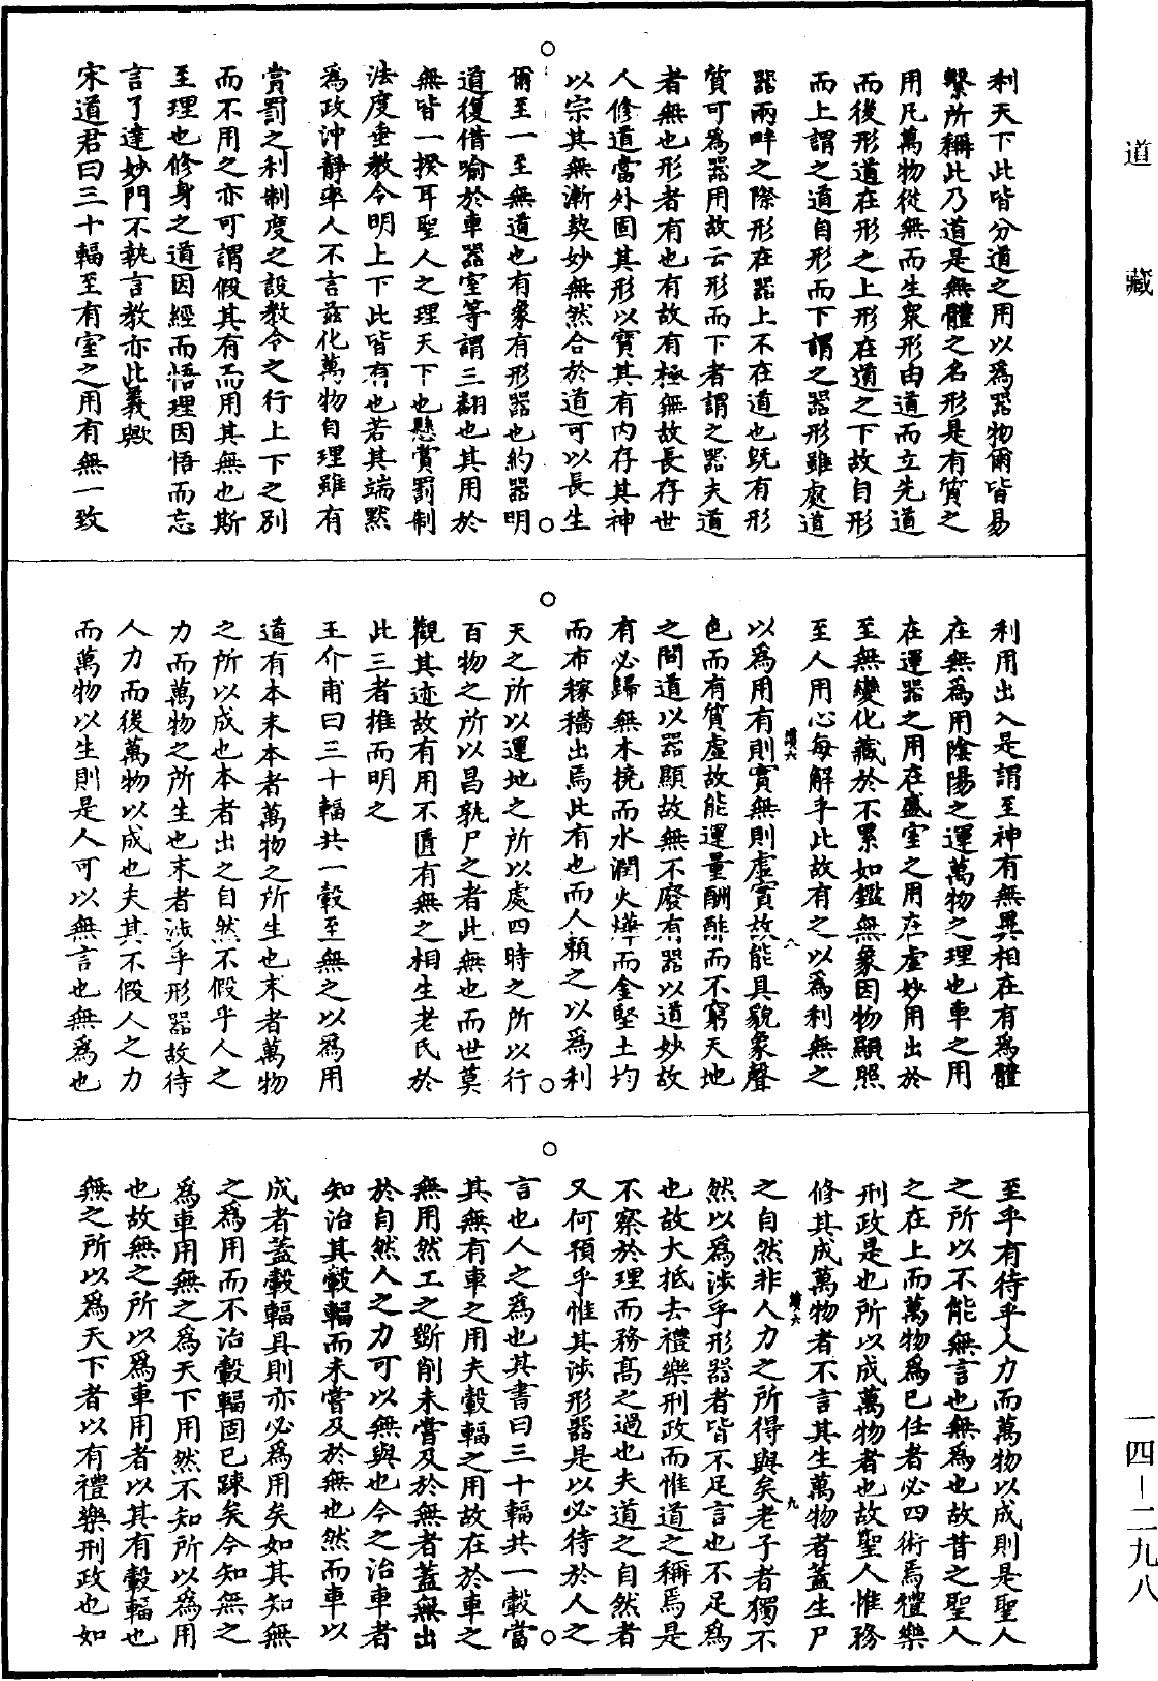 道藏
一四—二九八
利天下此皆分道之用以爲器物爾皆易
繫所稱此乃道是無體之名形是有質之
用凡萬物從無而生衆形由道而立先道
而後形道在形之上形在道之下故自形
而上謂之道自形而下謂之器形雖處道
器兩畔之際形在器上不在道也既有形
質可爲器用故云形而下者謂之器夫道
者無也形者有也有故有極無故長存世
人修道當外固其形以寶其有内存其神
以宗其無漸契妙無然合於道可以長生
爾至一至無道也有象有形器也約器明
道復借喻於車器室等謂三翻也其用於
無皆一揆耳聖人之理天下也懸賞罰制
法度垂教令明上下此皆有也若其端默
爲政沖靜率人不言兹化萬物自理雖有
賞罰之利制度之設教令之行上下之别
而不用之亦可謂假其有而用其無也斯
至理也修身之道因經而悟理因悟而忘
言了達妙門不執言教亦此義歟
宋道君曰三十輻至有室之用有無一致
利用出入是謂至神有無異相在有爲體
在無爲用陰陽之運萬物之理也車之用
在運器之用在盛室之用在虚妙用出於
至無變化藏於不累如鑑無象因物顯照
至人用心每解乎此故有之以爲利無之
以爲用有則實無則虚實故能具貌象聲
色而有質虚故能運量酬酢而不窮天地
之間道以器顯故無不廢有器以道妙故
有必歸無木撓而水潤火燁而金堅土均
而布稼穡出焉此有也而人賴之以爲利
天之所以運地之所以處四時之所以行
百物之所以昌孰尸之者此無也而世莫
觀其迹故有用不匱有無之相生老氏於
此三者推而明之
王介甫曰三十輻共一轂至無之以爲用
道有本末本者萬物之所生也末者萬物
之所以成也本者出之自然不假乎人之
力而萬物之所生也末者涉乎形器故待
人力而後萬物以成也夫其不假人之力
而萬物以生則是人可以無言也無爲也
至乎有待乎人力而萬物以成則是聖人
之所以不能無言也無爲也故昔之聖人
之在上而萬物爲已任者必四術焉禮樂
刑政是也所以成萬物者也故聖人惟務
修其成萬物者不言其生萬物者蓋生尸
之自然非人力之所得與矣老子者獨不
然以爲涉乎形器者皆不足言也不足爲
也故大抵去禮樂刑政而惟道之稱焉是
不察於理而務高之過也夫道之自然者
又何預乎惟其涉形器是以必待於人之
言也人之爲也其書曰三十輻共一轂當
其無有車之用夫轂輻之用故在於車之
無用然工之斲削未嘗及於無者蓋無出
於自然人之力可以無與也今之治車者
知治其轂輻而未嘗及於無也然而車以
成者蓋轂輻具則亦必爲用矣如其知無
之爲用而不治轂輻固已踈矣今知無之
爲車用無之爲天下用然不知所以爲用
也故無之所以爲車用者以其有轂輻也
無之所以爲天下者以有禮樂刑政也如